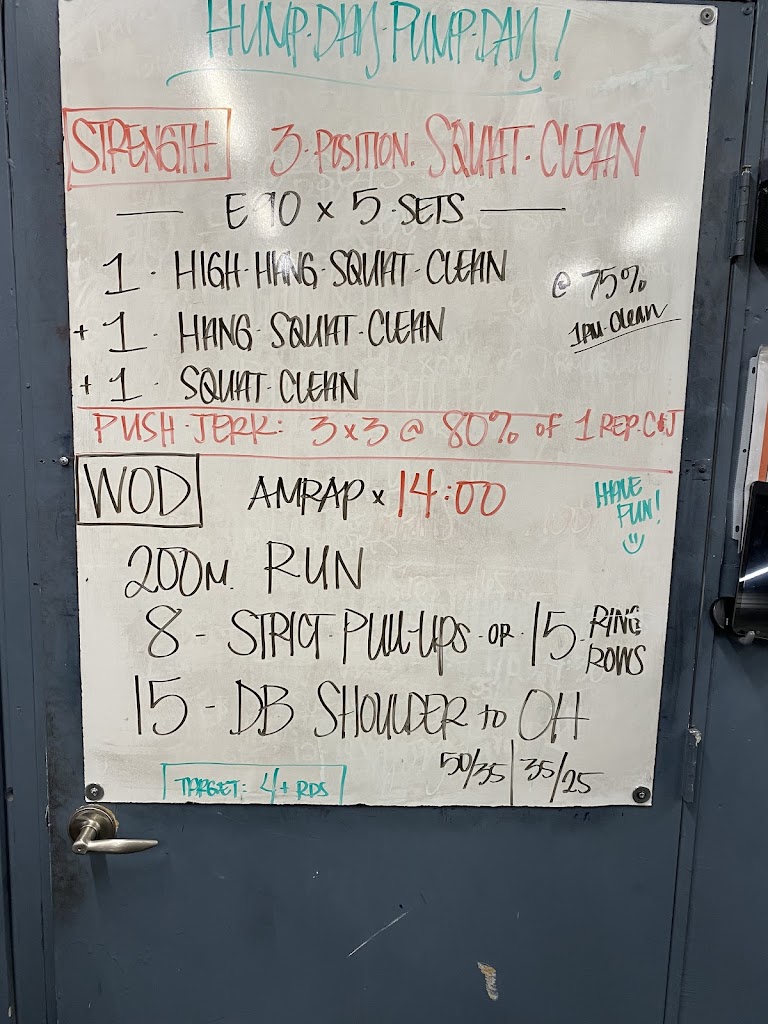 HUMP·DAY·PUMP·DAY!
STRENGTH 3·POSITION·SQUAT·CLEAN
— E90 x 5·SETS —
1 · HIGH·HANG·SQUAT·CLEAN @ 75%
+ 1 · HANG·SQUAT·CLEAN 1RM·Clean
+ 1 · SQUAT·CLEAN
PUSH·JERK: 3x3 @ 80% OF 1 REP·C&J
WOD AMRAP x 14:00 HAVE FUN!
200M. RUN
8 - STRICT·PULL-UPS·OR·15 RING ROWS
15 - DB SHOULDER to OH
50/35 | 35/25
TARGET: 4+ RDS